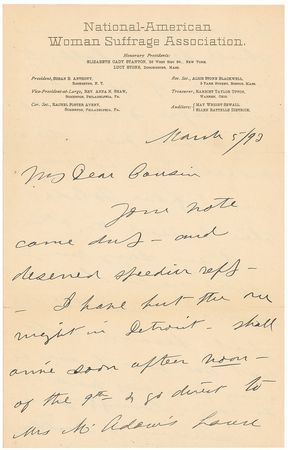 National-American
Woman Suffrage Association.
Honorary Presidents:
ELIZABETH CADY STANTON, 26 West 61st St., New York
LUCY STONE, Dorchester, Mass.
President, SUSAN B. ANTHONY,
Rochester, N. Y.
Vice-President-at-Large, REV. ANNA H. SHAW,
Somerton, Philadelphia, Pa.
Cor. Sec., RACHEL FOSTER AVERY,
Somerton, Philadelphia, Pa.
Rec. Sec., ALICE STONE BLACKWELL,
3 Park Street, Boston, Mass.
Treasurer, HARRIET TAYLOR UPTON,
Warren, Ohio.
Auditors: MAY WRIGHT SEWALL,
ELLEN BATTELLE DIETRICK.
March 5/93
My Dear Cousin
Your note
came duly - and
deserved speedier reply -
- I have but the one
night in Detroit - shall
arrive soon after noon -
of the 9th & go direct to
Mrs McAdams house